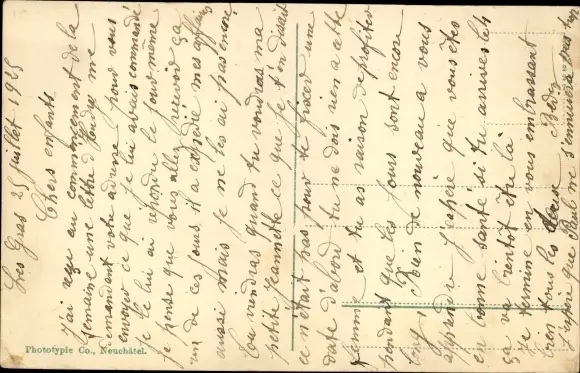 Les Gras 25 juillet 1925
Chers enfants
J'ai reçu au commencement de la
semaine une lettre d' me
demandant votre adresse pour vous
envoyer ce que je lui avais commandé
Je le lui ai répondu le jour même
je pense que vous allez recevoir ça
un de ces jours il a expédié mes affaires
aussi mais je ne les ai pas encore
Tu viendras quand tu voudras ma
petite Jeannette ce que je t'en disait
ce n'était pas pour te fixer une
date d'abord tu ne dois rien a cette
femme et tu as raison de profiter
pendant que les jours sont encore
long, Rien de nouveau a vous
apprendre j'espère que vous êtes
en bonne santé si tu arrives les
ça va bientôt être là
Je termine en vous embrassant
bien tous les deux
J'espère que Paul ne s'ennuiera pas trop
Phototypie Co., Neuchâtel.